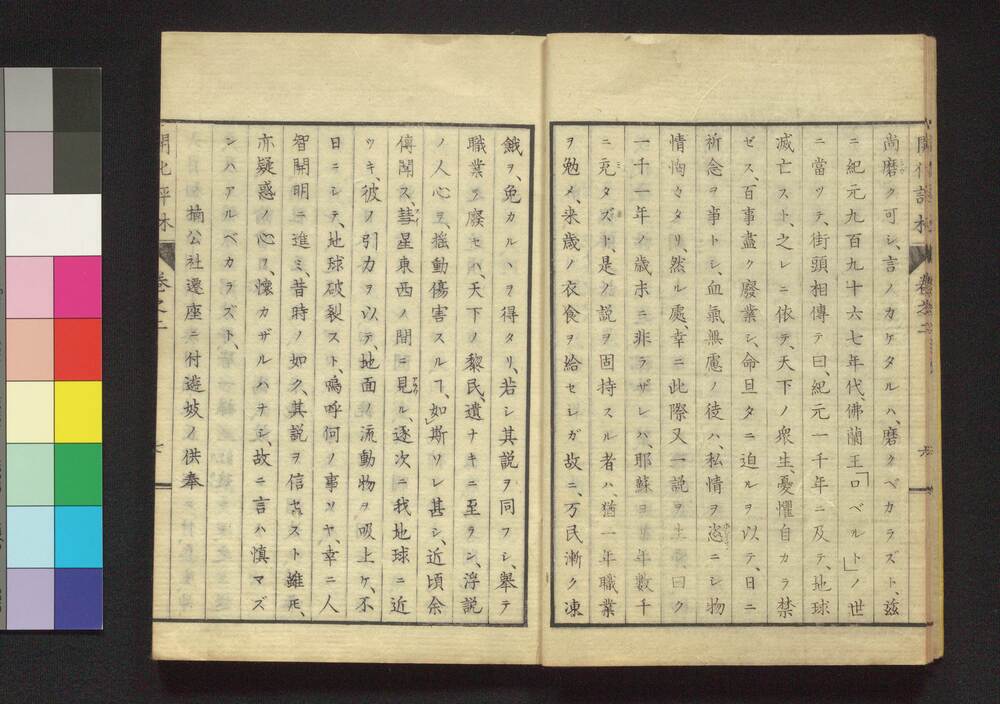 尚磨ク可シ、言ノカケタルハ、磨クベカラズト、玆
ニ紀元九百九十六七年代、佛蘭王「ロベルト」ノ世
ニ當ツテ、街頭相傳テ曰、紀元一千年ニ及テ、地球
滅亡スト、之レニ依テ、天下ノ衆生、憂懼自カラ禁
ゼス、百事盡ク廢業シ、命旦タニ迫ルヲ以テ、日ニ
祈念ヲ事トシ、血氣無慮ノ徒ハ、私情ヲ恣ニシ物
情恟々タリ、然ル處、幸ニ此際又一説ヲ生、曰ク
一千一年ノ歳末ニ非ラザレハ、耶蘇ヨ年數千
ニ充タズト、是ノ説ヲ固持スル者ハ、猶一年職業
ヲ勉メ、来歳ノ衣食ヲ給セシガ故ニ、万民漸ク凍
餓ヲ、免カルヽヲ得タリ、若シ其説ヲ同フシ、舉テ
職業ヲ廢セハ、天下ノ黎民、遺ナキニ至ラン、浮説
ノ人心ヲ、揺動傷害スルヿ、如斯ソレ甚シ、近頃余
傳聞ス、彗星東西ノ間ニ見ル、逐次ニ我地球ニ近
ツキ、彼ノ引力ヲ以テ、地面ノ流動物ヲ吸上ケ、不
日ニシテ、地球破裂スト、嗚呼何ノ事ソヤ、幸ニ人
智開明ニ進ミ、昔時ノ如ク、其説ヲ信セスト雖𪜈、
亦疑惑ノ心ヲ、懐カザルハナシ、故ニ言ハ慎マズ
ンハアルベカラズト、
楠公社遷座ニ付遊妓ノ供奉
開化評林
卷之二